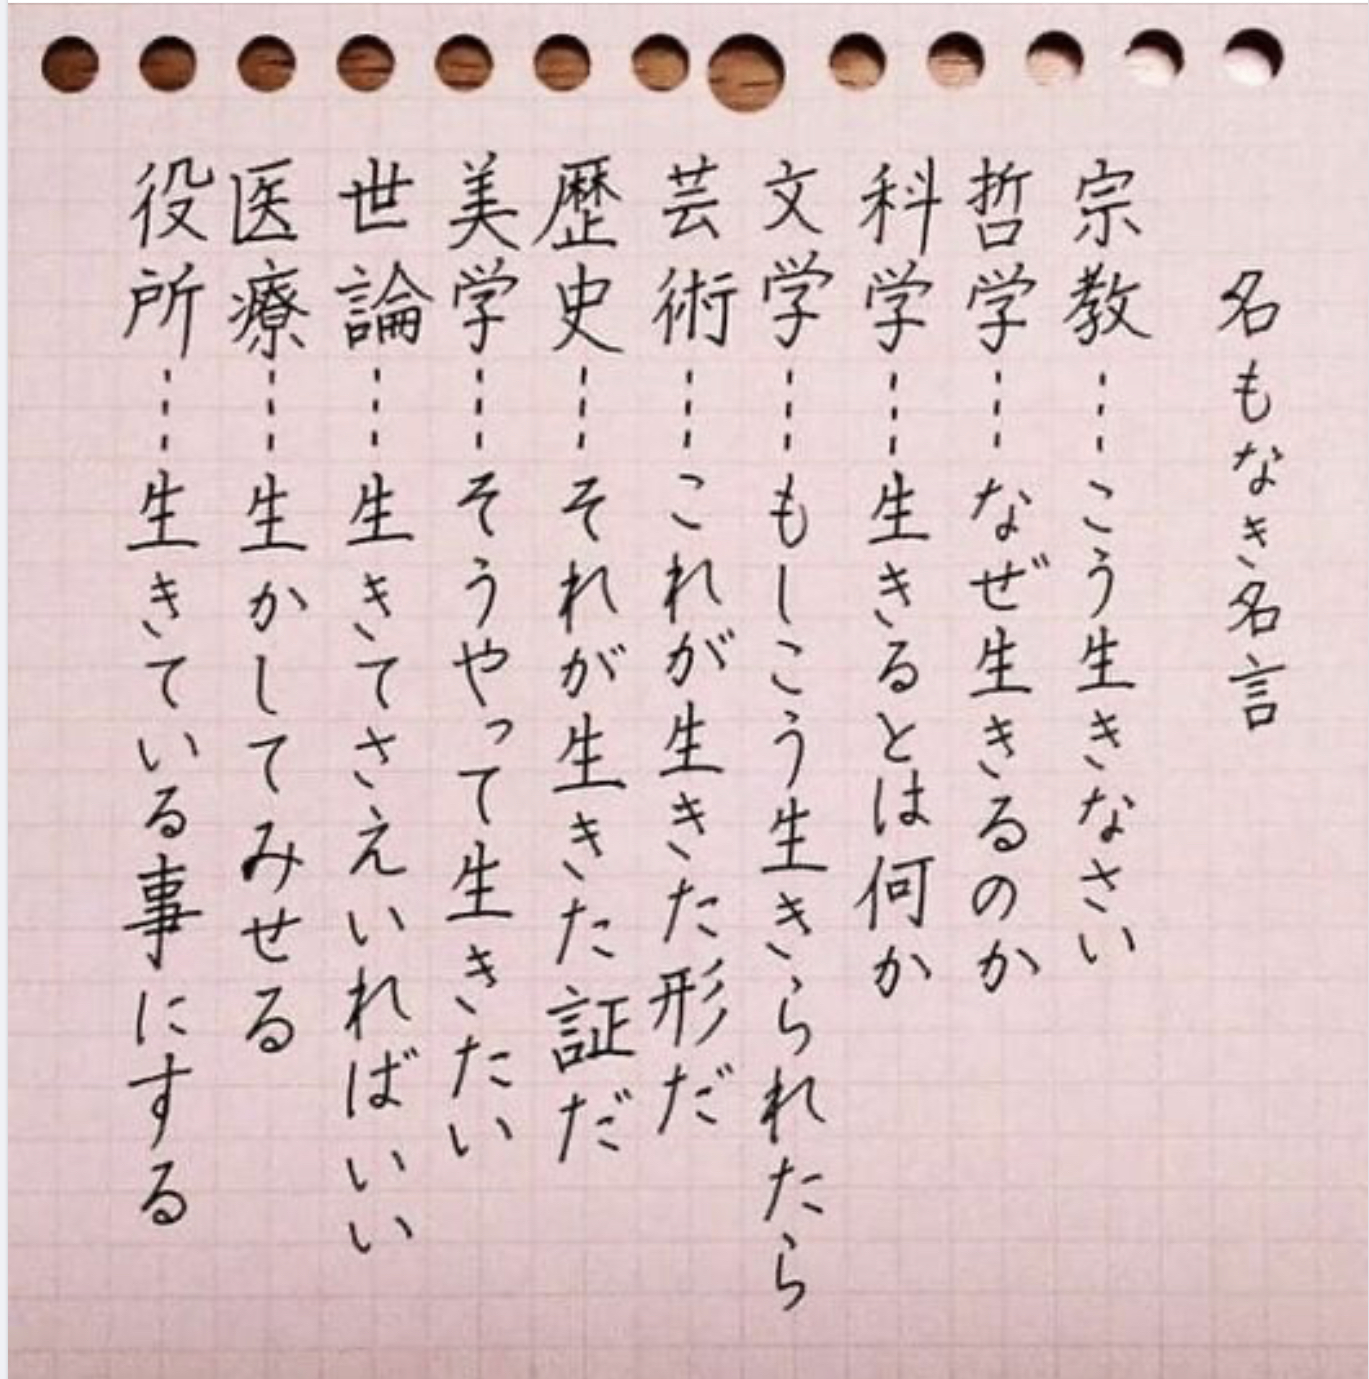 名もなき名言
宗教…こう生きなさい
哲学…なぜ生きるのか
科学…生きるとは何か
文学…もしこう生きられたら
芸術…これが生きた形だ
歴史…それが生きた証だ
美学…そうやって生きたい
世論…生きてさえいればいい
医療…生かしてみせる
役所…生きている事にする